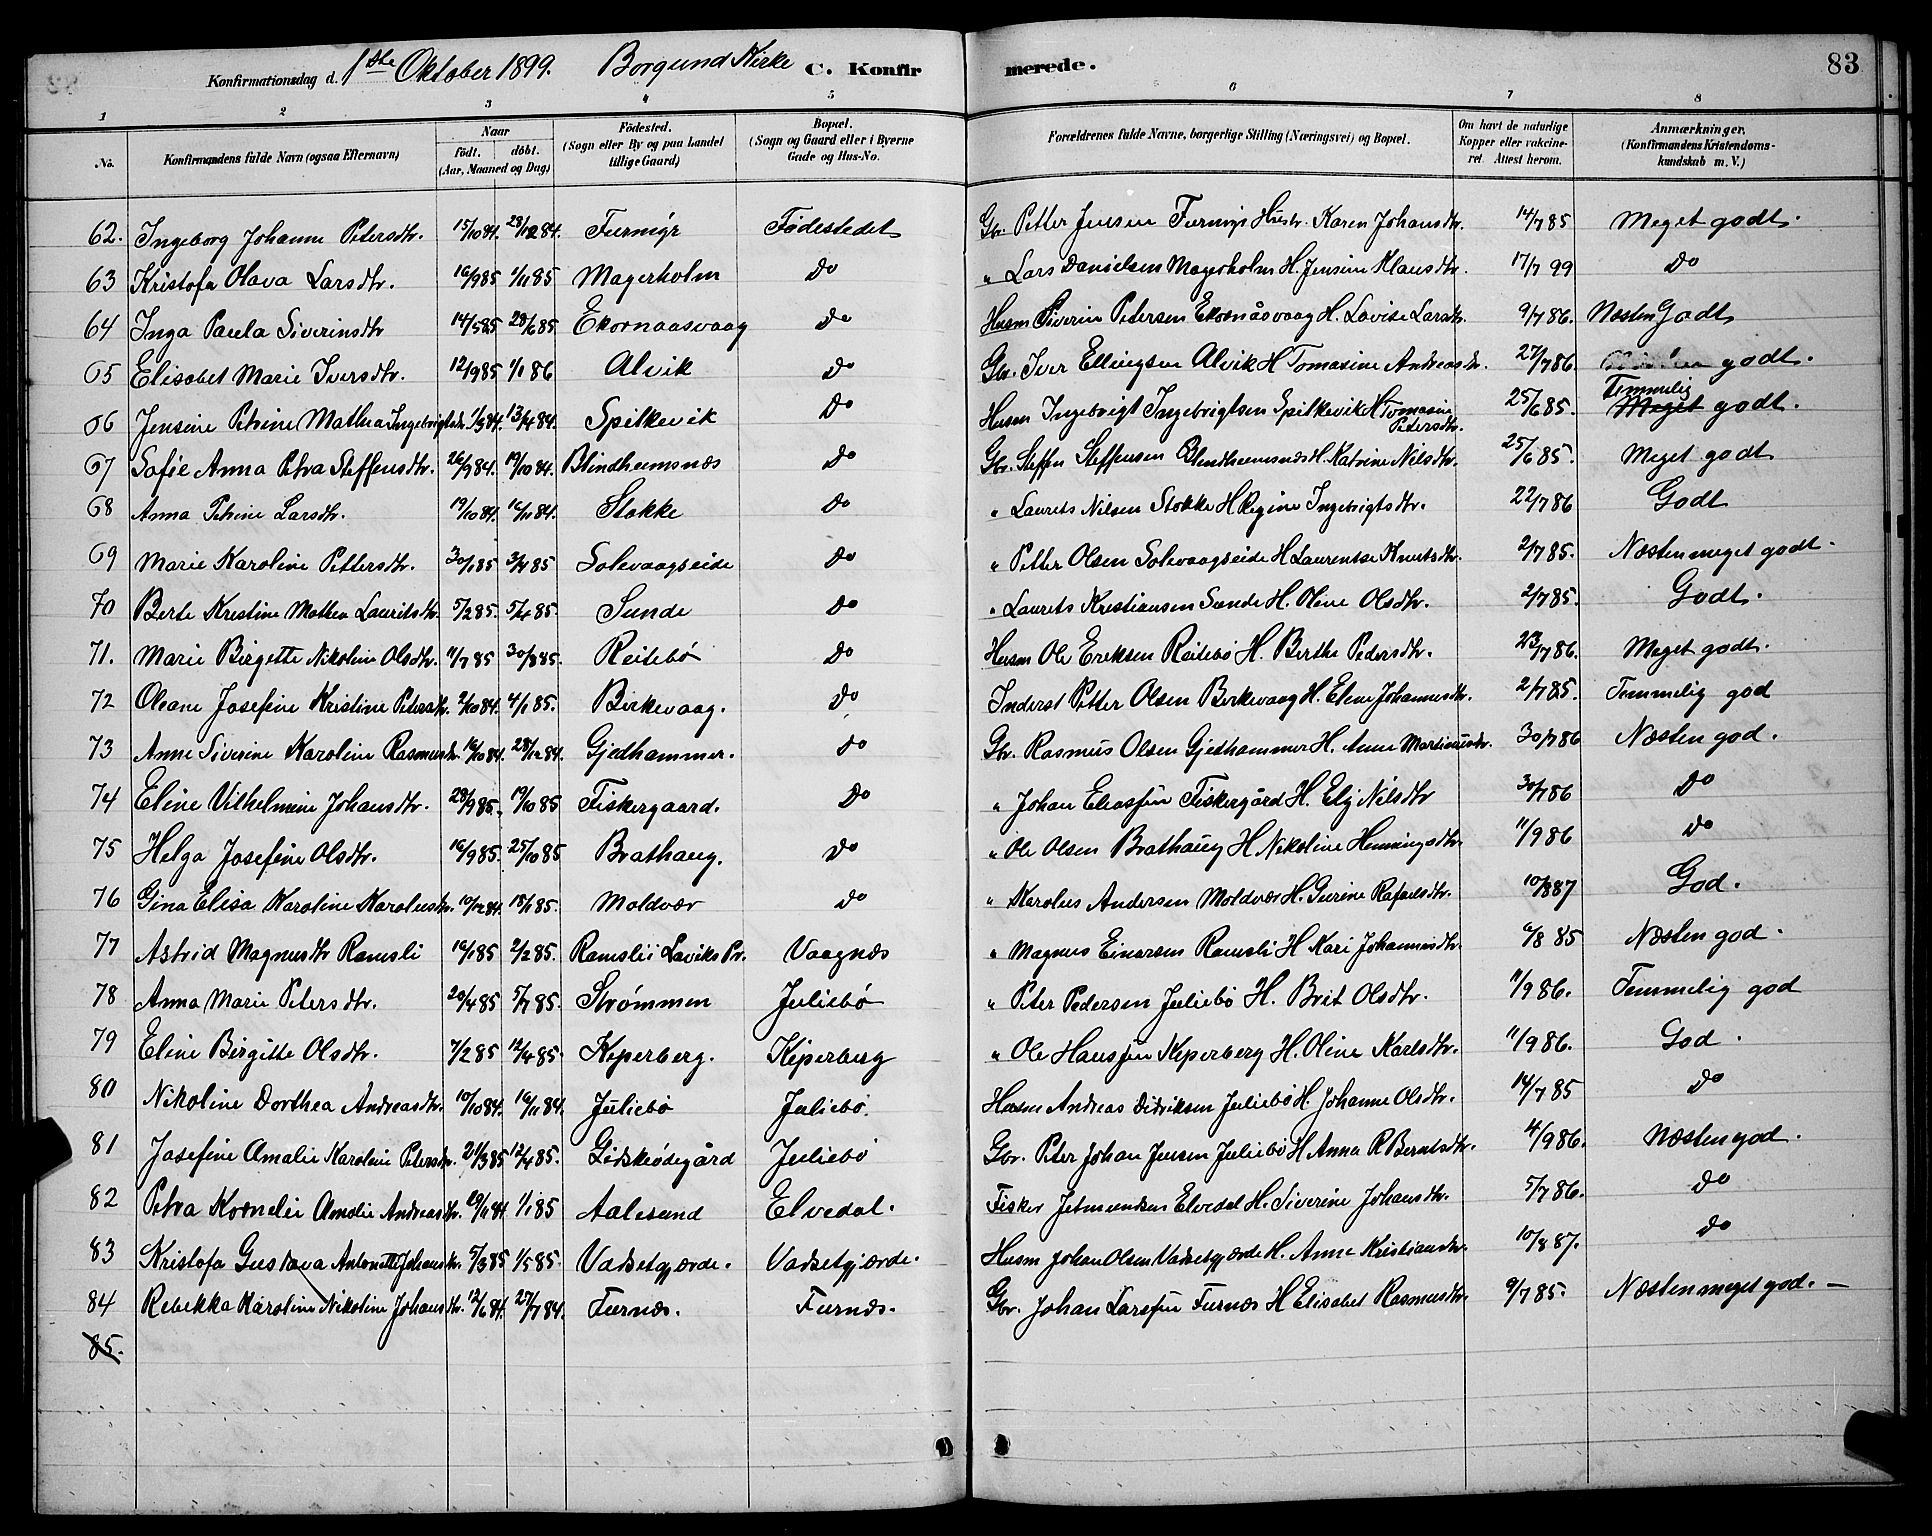 Konfirmationsdag d. 1ste Oktober 1899. Borgund Kirke C. Konfirmerede. 83
1 2 3 4 5 6 7 8
No. Konfirmandens fulde Navn (ogsaa Efternavn) Naar födt. döbt. (Aar, Maaned og Dag) Födested. (Sogn eller By og paa Landet tillige Gaard) Bopæl. (Sogn og Gaard eller i Byerne Gade og Hus-No. Forældrenes fulde Navne, borgerlige Stilling (Næringsvei) og Bopæl. Om havt de naturlige Kopper eller vakcineret. Attest herom. Anmærkninger. (Konfirmandens Kristendomskundskab m. V.)
62. Ingeborg Johanne Petersdtr. 15/10 84. 28/12 84. Furmyr Fødestedet Gbr. Petter Jensen Furmyr Hustr. Karen Johansdtr. 14/7 85 Meget godt.
63 Kristofa Olava Larsdtr. 16/9 85 1/11 85 Magerholm Do " Lars Danielsen Magerholm H. Jensine Klausdtr. 17/7 99 Do
64 Inga Paula Siverinsdtr 14/5 85 28/6 85 Ekornaasvaag Do Husm Siverin Petersen Ekornåsvaag H. Lovise Larsdtr. 9/7 86. Næsten Godt
65 Elisabet Marie Iversdtr. 12/9 85 1/1 86 Alvik Do Gbr. Iver Ellingsen Alvik H Tomasine Andreasdtr. 27/7 86. godt.
66 Jensine Petrine Mathea Ingebrigtsdtr. 1/3 84. 13/4 84. Spitkevik Do Husm Ingebrigt Ingebrigtsen Spitkevik H Tomasine Petersdtr. 25/6 85. Temmelig Meget godt.
67 Sofie Anna Petra Steffensdtr. 26/9 84. 19/10 84. Blindheimsnæs Do Gbr. Steffen Steffensen Blindheimsnæs H. Katrine Nilsdtr. 25/6 85. Meget godt
68 Anna Petrine Larsdtr. 19/10 84. 16/11 84. Stokke Do " Laurits Nilsen Stokke H Regine Ingebrigtsdtr. 22/7 86 Godt
69 Marie Karoline Pettersdtr. 30/1 85 3/4 85 Solevaagseide Do " Petter Olsen Solevaagseide H Laurentse Knutsdtr. 2/7 85. Næsten meget godt.
70 Berte Kristine Mathea Lauritsdtr. 5/2 85. 5/4 85 Sunde Do " Laurits Kristiansen Sunde H. Oline Olsdtr. 2/7 85. Godt.
71. Marie Birgette Nikoline Olsdtr. 11/7 85 30/8 85. Reitebø Do Husm Ole Eriksen Reitebø H. Berthe Pedersdtr. 23/7 86. Meget godt.
72 Oleane Josefine Kristine Petersdtr. 2/10 84. 4/1 85. Birkevaag. Do Inderst Petter Olsen Birkevaag H. Eline Johannesdtr. 2/7 85. Temmelig god
73 Anne Siverine Karoline Rasmusdtr. 16/10 84. 28/12 84. Gjedhammer. Do Gbr. Rasmus Olsen Gjedhammer H. Anne Martinusdtr. 30/7 86 Næsten god.
74 Eline Vilhelmine Johansdtr. 28/9 85. 19/10 85 Fiskergaard. Do " Johan Eliassen Fiskergård H. Elij Nilsdtr 30/7 86 Do
75 Helga Josefine Olsdtr. 16/9 85. 25/10 85 Brathaug. Do " Ole Olsen Brathaug H Nikoline Henningsdtr. 11/9 86 Do
76 Gina Elisa Karoline Karolusdtr. 10/12 84. 18/1 85. Moldvær Do " Karolus Andersen Moldvær H. Gurine Rafaelsdtr. 10/8 87 God.
77 Astrid Magnusdtr Ramsli 16/1 85 2/2 85. Ramsli i Laviks Pr. Vaagnæs " Magnus Einarsen Ramsli H Kari Johannesdtr. 6/8 85 Næsten god.
78 Anna Marie Petersdtr. 20/4 85 5/7 85. Strømmen Juliebø " Peter Pedersen Juliebø H. Brit Olsdtr. 11/9 86. Temmelig god
79 Eline Birgitte Olsdtr. 7/2 85 12/4 85. Kiperberg. Kiperberg " Ole Hanssen Kiperberg H. Oline Karlsdtr. 11/9 86. God.
80 Nikoline Dorthea Andreasdtr. 10/10 84. 16/11 84. Juliebø Juliebø. Husm Andreas Didriksen Juliebø H. Johanne Olsdtr. 14/7 85 Do
81 Josefine Amalie Karoline Petersdtr. 21/3 85 12/4 85. Giskeødegård Juliebø Gbr. Peter Johan Jensen Juliebø H Anna R Berntsdtr. 4/9 86. Næsten god.
82 Petra Kornelie Amalie Andreasdtr. 19/11 84 1/1 85 Aalesund Elvedal. Fisker Jetmundsen Elvedal H. Siverine Johansdtr. 5/7 86. Do
83 Kristofa Gustava Antonette Johansdtr. 5/3 85 1/5 85. Vadsetgjærde. Vadsetgjærde. Husm Johan Olsen Vadsetgjærde H. Anne Kristiansdtr. 10/8 87. Do
84 Rebekka Karoline Nikoline Johansdtr. 12/6 84. 27/7 84. Furnæs. Furnæs. Gbr. Johan Larssen Furnæs H Elisabet Rasmusdtr. 9/7 85. Næsten meget god. —
85.